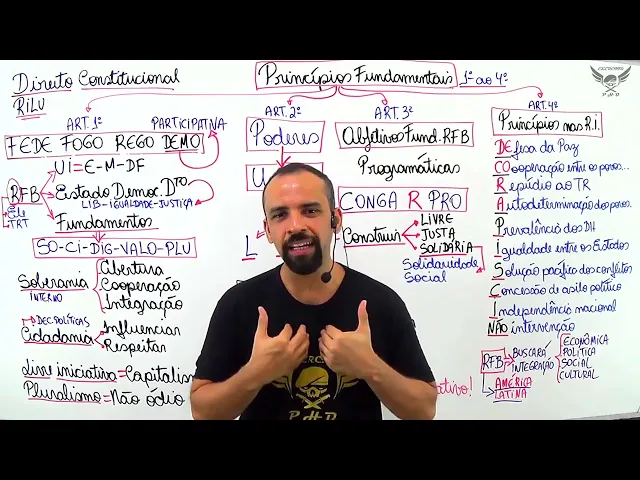 Direito Constitucional
RILU
Princípios Fundamentais 1º ao 4º
ART. 1º
PARTICIPATIVA
FEDE FOGO REGO DEMO
UI=E-M-DF
RFB
Estado Democ. Dto
LIB-IGUALDADE-JUSTIÇA
TRT
Fundamentos
SO-CI-DIG-VALO-PLU
Soberania
INTERNO
Cibertura
Cooperação
Integração
DEC. POLÍTICAS
Cidadania
Influenciar
Respeitar
Livre iniciativa = Capitalism
Pluralismo = Não ódio
ART. 2º
Poderes
U
L
ART. 3º
Objetivos Fund. RFB
Programáticas
CONGA R PRO
Construir
LIVRE
JUSTA
SOLIDÁRIA
Solidariedade
Social
ativo!
ART. 4º
Princípios nas R.I.
DEfesa da Paz
COoperação entre os povos...
Repúdio ao TR
Autodeterminação dos povos.
Prevalência dos DH
Igualdade entre os Estados
Solução pacífica dos conflitos
Concessão de asilo político
Independência nacional
NÃO intervenção
RFB
BUSCARÁ
INTEGRAÇÃO
ECONÔMICA
POLÍTICA
SOCIAL
CULTURAL
AMÉRICA
LATINA
P H D
P H D